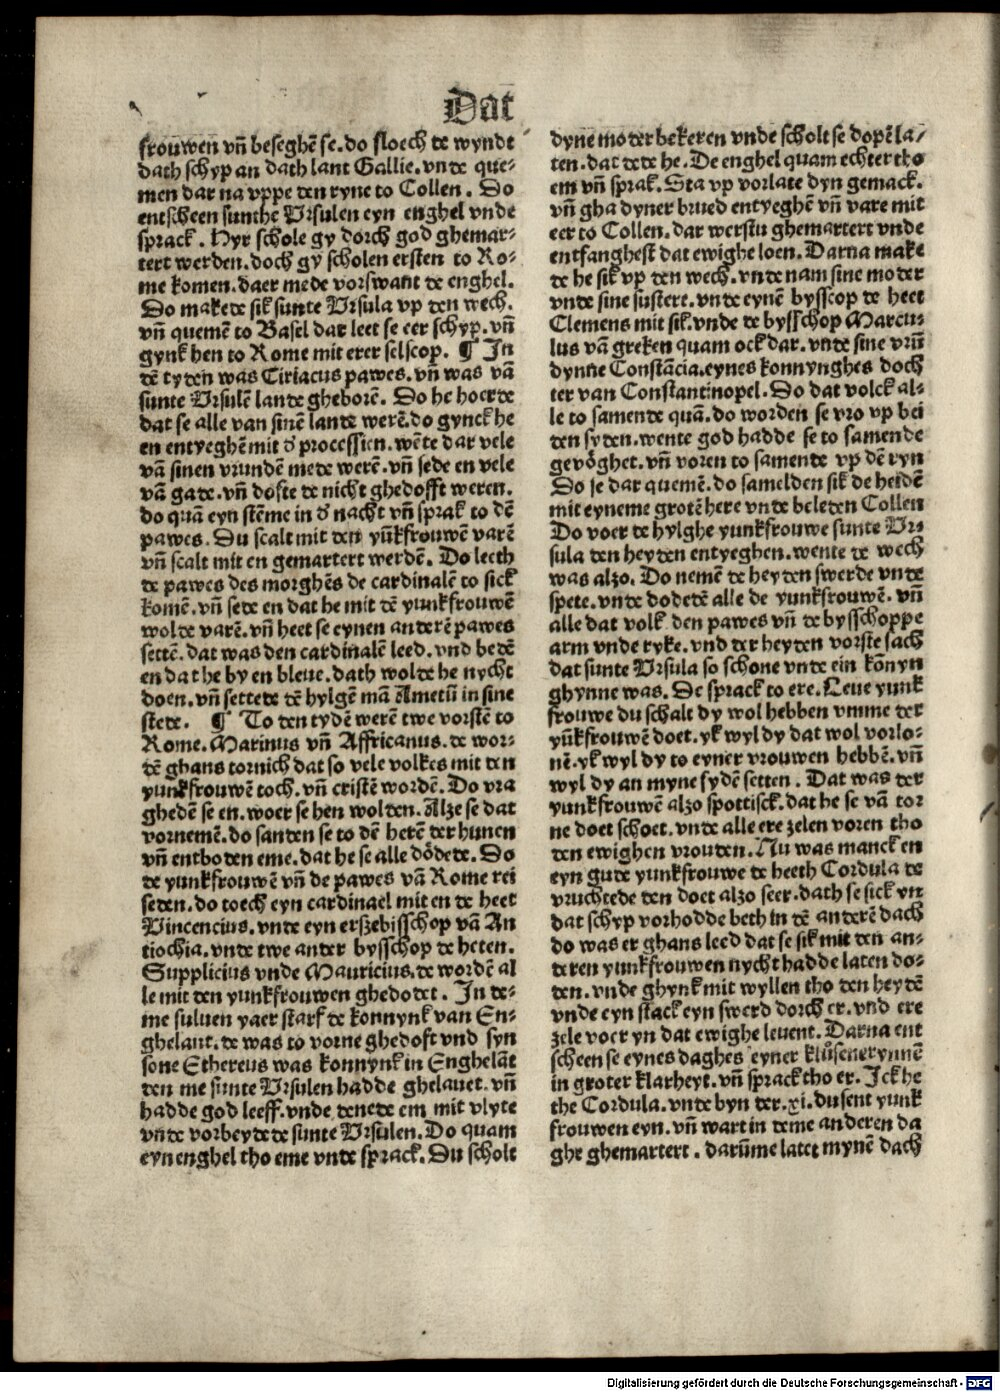 Dat
frouwen vn̄ beseghē se. do sloech de wyndt
dath schyp an dath lant Gallie. vnde que-
men dar na vppe den ryne to Collen. Do
entscheen sunthe Vrsulen eyn enghel vnde
sprack. Hyr schole gy dorch god ghemar-
tert werden. doch gy scholen ersten to Ro-
me komen. daer mede vorswant de enghel.
Do makede sik sunte Vrsula vp den wech.
vn̄ quemē to Basel dar leet se eer schyp. vn̄
gynk hen to Rome mit erer selscop. ¶ In
dē tyden was Ciriacus pawes. vn̄ was vā
sunte Vrsulē lande gheborē. Do he hoerde
dat se alle van sinē lande werē. do gynck he
en entyeghē mit d' processien. wēte dar vele
vā sinen vrundē mede werē. vn̄ sede en vele
vā gade. vn̄ dofte de nicht ghedofft weren.
do quā eyn stēme in d' nacht vn̄ sprak to dē
pawes. Du scalt mit den yūkfrouwē varē
vn̄ scalt mit en gemartert werdē. Do leeth
de pawes des morghēs de cardinalē to sick
komē. vn̄ sede en dat he mit dē yunkfrouwē
wolde varē. vn̄ heet se eynen anderē pawes
settē. dat was den cardinalē leed. vnd bedē
en dat he by en bleue. dath wolde he nycht
doen. vn̄ settede dē hylgē mā Ametū in sine
stede. ¶ To den tydē werē twe vorstē to
Rome. Marinus vn̄ Affricanus. de wor-
dē ghans tornich dat so vele volkes mit den
yunkfrouwē toch. vn̄ cristē wordē. Do vra
ghedē se en. woer se hen wolden. Alze se dat
vornemē. do sanden se to dē herē der hunen
vn̄ entboden eme. dat he se alle dȫdede. Do
de yunkfrouwē vn̄ de pawes vā Rome rei
seden. do toech eyn cardinael mit en de heet
Vincencius. vnde eyn erszebisschop vā An
tiochia. vnde twe ander bysschop de heten.
Supplicius vnde Mauricius. de wordē al
le mit den yunkfrouwen ghedodet. In de-
me suluen yaer starf de konnynk van En-
ghelant. de was to vorne ghedoft vnd syn
sone Ethereus was konnynk in Enghelāt
den me sunte Vrsulen hadde ghelauet. vn̄
hadde god leeff. vnde denede em mit vlyte
vnde vorbeydede sunte Vrsulen. Do quam
eyn enghel tho eme vnde sprack. Du scholt
dyne moder bekeren vnde scholt se dopē la/
ten. dat dede he. De enghel quam echter tho
em vn̄ sprak. Sta vp vorlate dyn gemack.
vn̄ gha dyner brued entyeghē vn̄ vare mit
eer to Collen. dar werstu ghemartert vnde
entfanghest dat ewighe loen. Darna make
de he sik vp den wech. vnde nam sine moder
vnde sine sustere. vnde eynē bysscop de heet
Clemens mit sik. vnde de bysschop Marcu-
lus vā greken quam ock dar. vnde sine vrūt
dynne Constācia. eynes konnynghes doch
ter van Constantinopel. Do dat volck al-
le to samende quā. do worden se vro vp bei
den syden. wente god hadde se to samende
gevöghet. vn̄ voren to samende vp dē ryn
Do se dar quemē. do samelden sik de heidē
mit eyneme grotē here vnde beleden Collen
Do voer de hylghe yunkfrouwe sunte Vr-
sula den heyden entyeghen. wente de wech
was alzo. Do nemē de heyden swerde vnde
spete. vnde dodetē alle de yunkfrouwē. vn̄
alle dat volk den pawes vn̄ de bysschoppe
arm vnde ryke. vnd der heyden vorste sach
dat sunte Vrsula so schone vnde ein kōnyn
ghynne was. De sprack to ere. Leue yunk
frouwe du schalt dy wol hebben vmme der
yūkfrouwē doet. yk wyl dy dat wol vorlo-
nē. yk wyl dy to eyner vrouwen hebbē. vn̄
wyl dy an myne sydē setten. Dat was der
yunkfrouwē alzo spottisck. dat he se vā tor
ne doet schoet. vnde alle ere zelen voren tho
den ewighen vrouden. Nu was manck en
eyn gude yunkfrouwe de heeth Cordula de
vruchtede den doet alzo seer. dath se sick yn
dat schyp vorhodde beth in dē anderē dach
do was er ghans leed dat se sik mit den an-
deren yunkfrouwen nycht hadde laten do-
den. vnde ghynk mit wyllen tho den heydē
vnde eyn stack eyn swerd dorch er. vnd ere
zele voer yn dat ewighe leuent. Darna ent
scheen se eynes daghes eyner klůsenerynnē
in groter klarheyt. vn̄ sprack tho er. Ick he
the Cordula. vnde byn der. xi. dusent yunk
frouwen eyn. vn̄ wart in deme anderen da
ghe ghemartert. darūme latet mynē dach
Digitalisierung gefördert durch die Deutsche Forschungsgemeinschaft - DFG